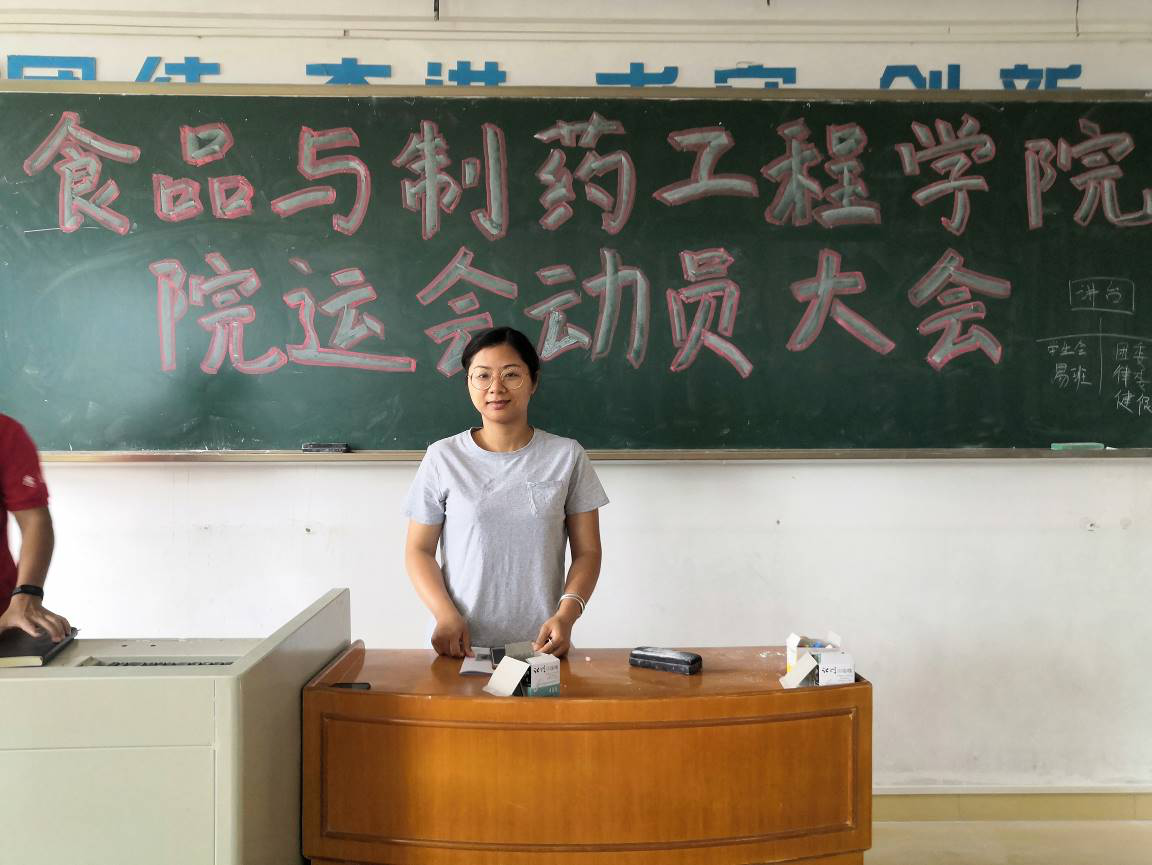 团结 奋进 求实 创新
食品与制药工程学院
院运会动员大会
讲台
学生会 团委
易班 律委
健促